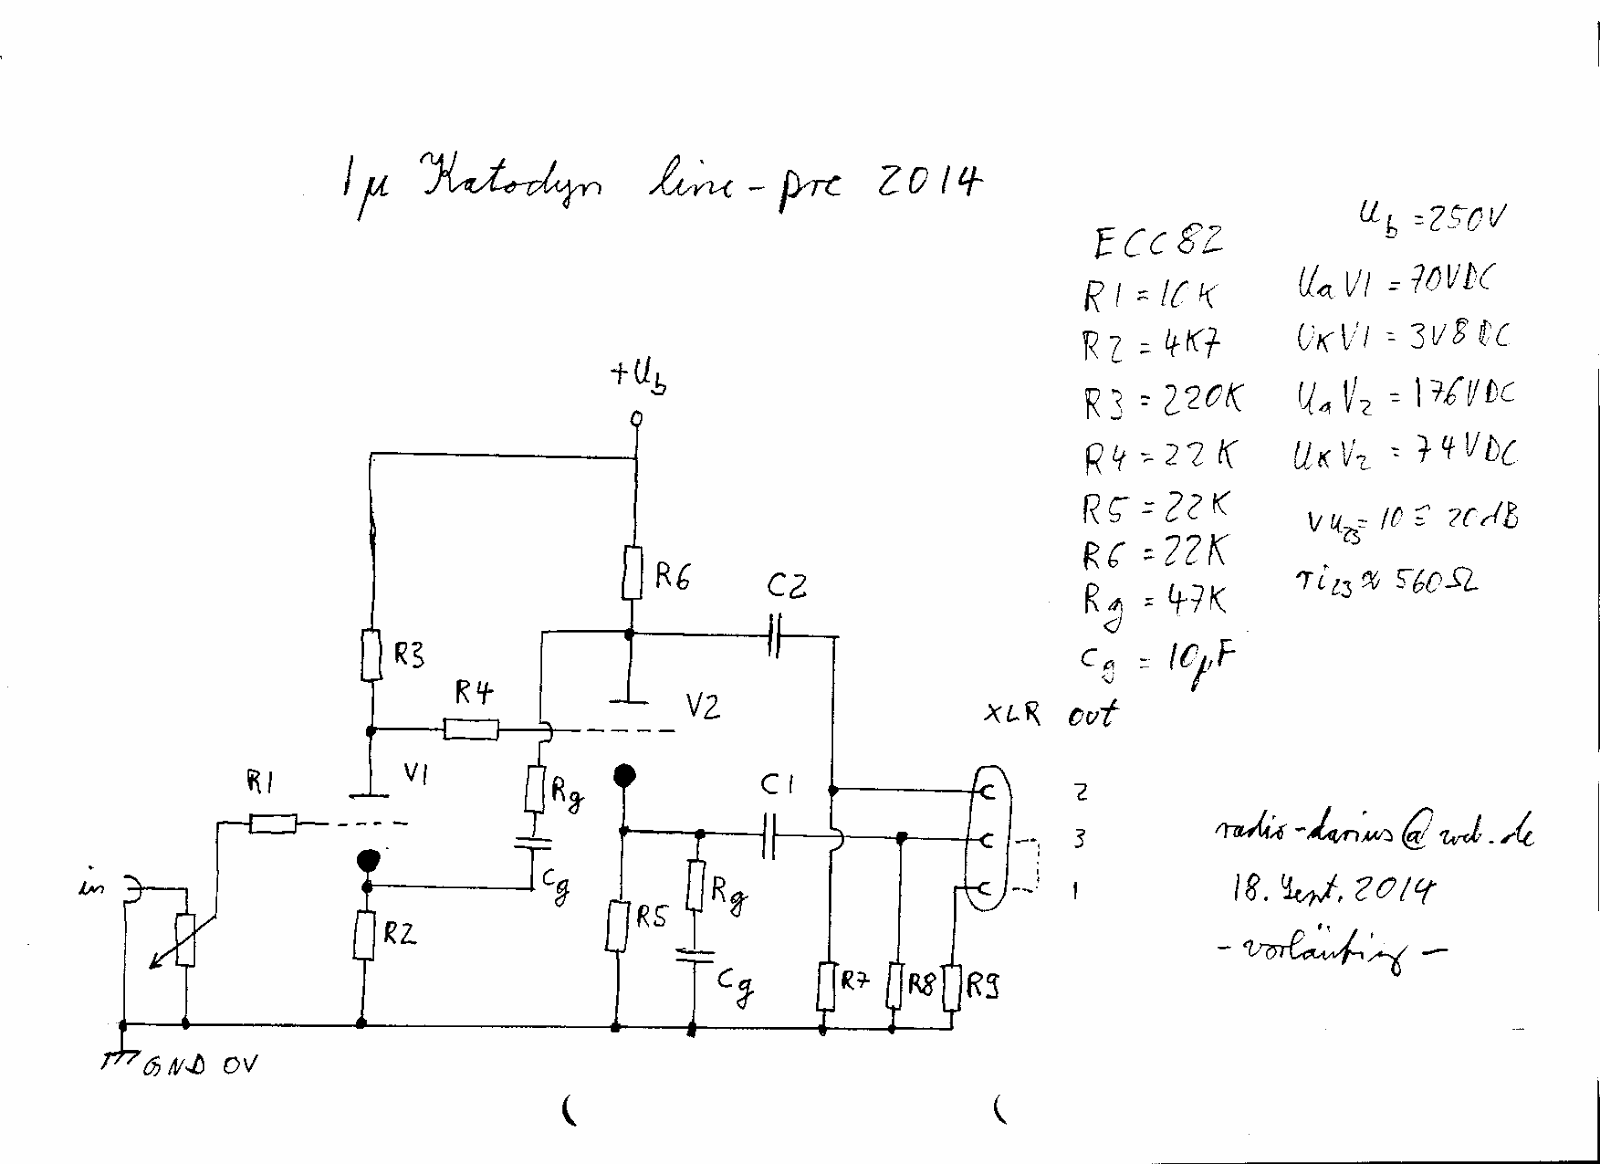 1µ Katodyn line-pre 2014
ECC82
R1 = 10K
R2 = 4K7
R3 = 220K
R4 = 22K
R5 = 22K
R6 = 22K
Rg = 47K
Cg = 10µF
Ub = 250V
UaV1 = 70VDC
UKV1 = 3V8DC
UaV2 = 176VDC
UKV2 = 74VDC
vu23 = 10 ≙ 20dB
ri23 ≈ 560Ω
+Ub
R6
C2
R3
R4
V2
V1
Rg
Cg
R1
C1
in
R2
R5
Rg
Cg
R7
R8
R9
XLR out
2
3
1
GND 0V
radio-darius@web.de
18. Sept. 2014
- vorläufig -